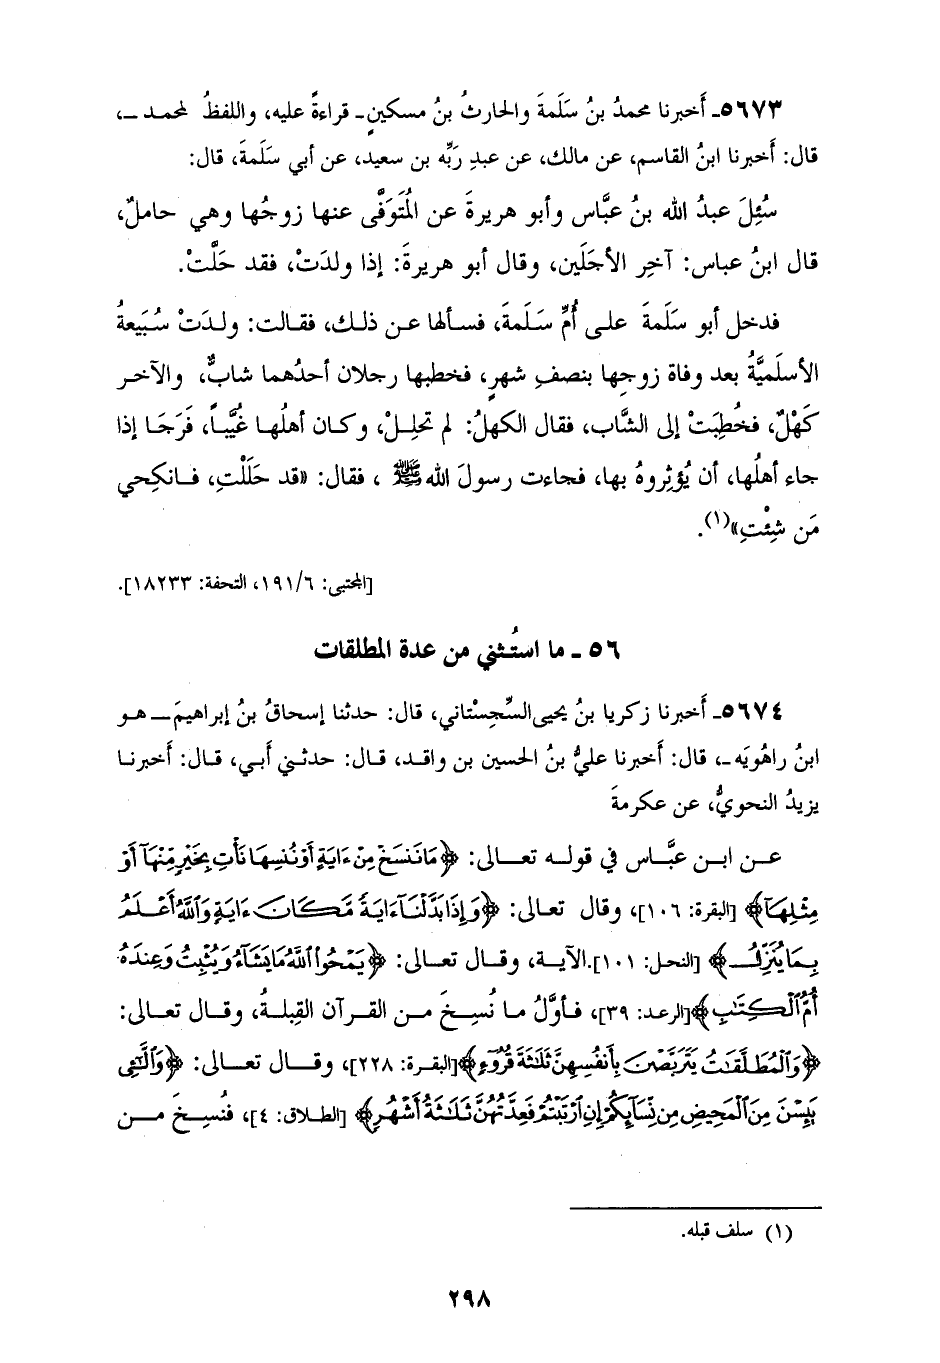 ٥٦٧٣ـ أَخبرنا محمدُ بنُ سَلَمةَ والحارثُ بنُ مسكينٍ ـ قراءةً عليه، واللفظُ لمحمد ـ،
قال: أَخبرنا ابنُ القاسم، عن مالك، عن عبدِ رَبِّه بن سعيد، عن أبي سَلَمةَ، قال:
سُئِلَ عبدُ الله بنُ عبَّاس وأبو هريرةَ عن المُتَوَفَّى عنها زوجُها وهي حاملٌ،
قال ابنُ عباس: آخرِ الأجَلَين، وقال أبو هريرةَ: إذا ولدَتْ، فقد حَلَّتْ.
فدخل أبو سَلَمةَ على أُمِّ سَلَمةَ، فسألها عن ذلك، فقالت: ولدَتْ سُبَيعةُ
الأسلَميَّةُ بعد وفاة زوجِها بنصفِ شهرٍ، فخطبها رجلان أحدُهما شابٌّ، والآخر
كَهْلٌ، فخُطِبَتْ إلى الشَّاب، فقال الكهلُ: لم تحلِلْ، وكان أهلُها غُيَّباً، فَرَجَا إذا
جاء أهلُها، أن يُؤثِروهُ بها، فجاءت رسولَ الله ﷺ، فقال: «قد حَلَلْتِ، فانكِحي
مَن شِئْتِ»(١).
[المجتبى: ١٩١/٦، التحفة: ١٨٢٣٣].
٥٦ ـ ما استُثني من عدة المطلقات
٥٦٧٤ـ أَخبرنا زكريا بنُ يحيى السِّجِسْتاني، قال: حدثنا إسحاقُ بنُ إبراهيمَ ـ هو
ابنُ راهُويَه ـ، قال: أَخبرنا عليُّ بنُ الحسين بن واقد، قال: حدثني أَبي، قال: أَخبرنا
يزيدُ النحويُّ، عن عكرمةَ
عن ابن عبَّاس في قوله تعالى: ﴿مَا نَنسَخْ مِنْ ءَايَةٍ أَوْ نُنسِهَا نَأْتِ بِخَيْرٍ مِّنْهَآ أَوْ
مِثْلِهَآ﴾ [البقرة: ١٠٦]، وقال تعالى: ﴿وَإِذَا بَدَّلْنَآ ءَايَةً مَّكَانَ ءَايَةٍ وَٱللَّهُ أَعْلَمُ
بِمَا يُنَزِّلُ﴾ [النحل: ١٠١].الآية، وقال تعالى: ﴿يَمْحُوا۟ ٱللَّهُ مَا يَشَآءُ وَيُثْبِتُ وَعِندَهُ
أُمُّ ٱلْكِتَٰبِ﴾[الرعد: ٣٩]، فأوَّلُ ما نُسِخَ من القرآن القِبلةُ، وقال تعالى:
﴿وَٱلْمُطَلَّقَٰتُ يَتَرَبَّصْنَ بِأَنفُسِهِنَّ ثَلَٰثَةَ قُرُوٓءٍ﴾[البقرة: ٢٢٨]، وقال تعالى: ﴿وَٱلَّٰٓـِٔى
يَئِسْنَ مِنَ ٱلْمَحِيضِ مِن نِّسَآئِكُمْ إِنِ ٱرْتَبْتُمْ فَعِدَّتُهُنَّ ثَلَٰثَةُ أَشْهُرٍ﴾ [الطلاق: ٤]، فنُسِخَ من
(١) سلف قبله.
٢٩٨